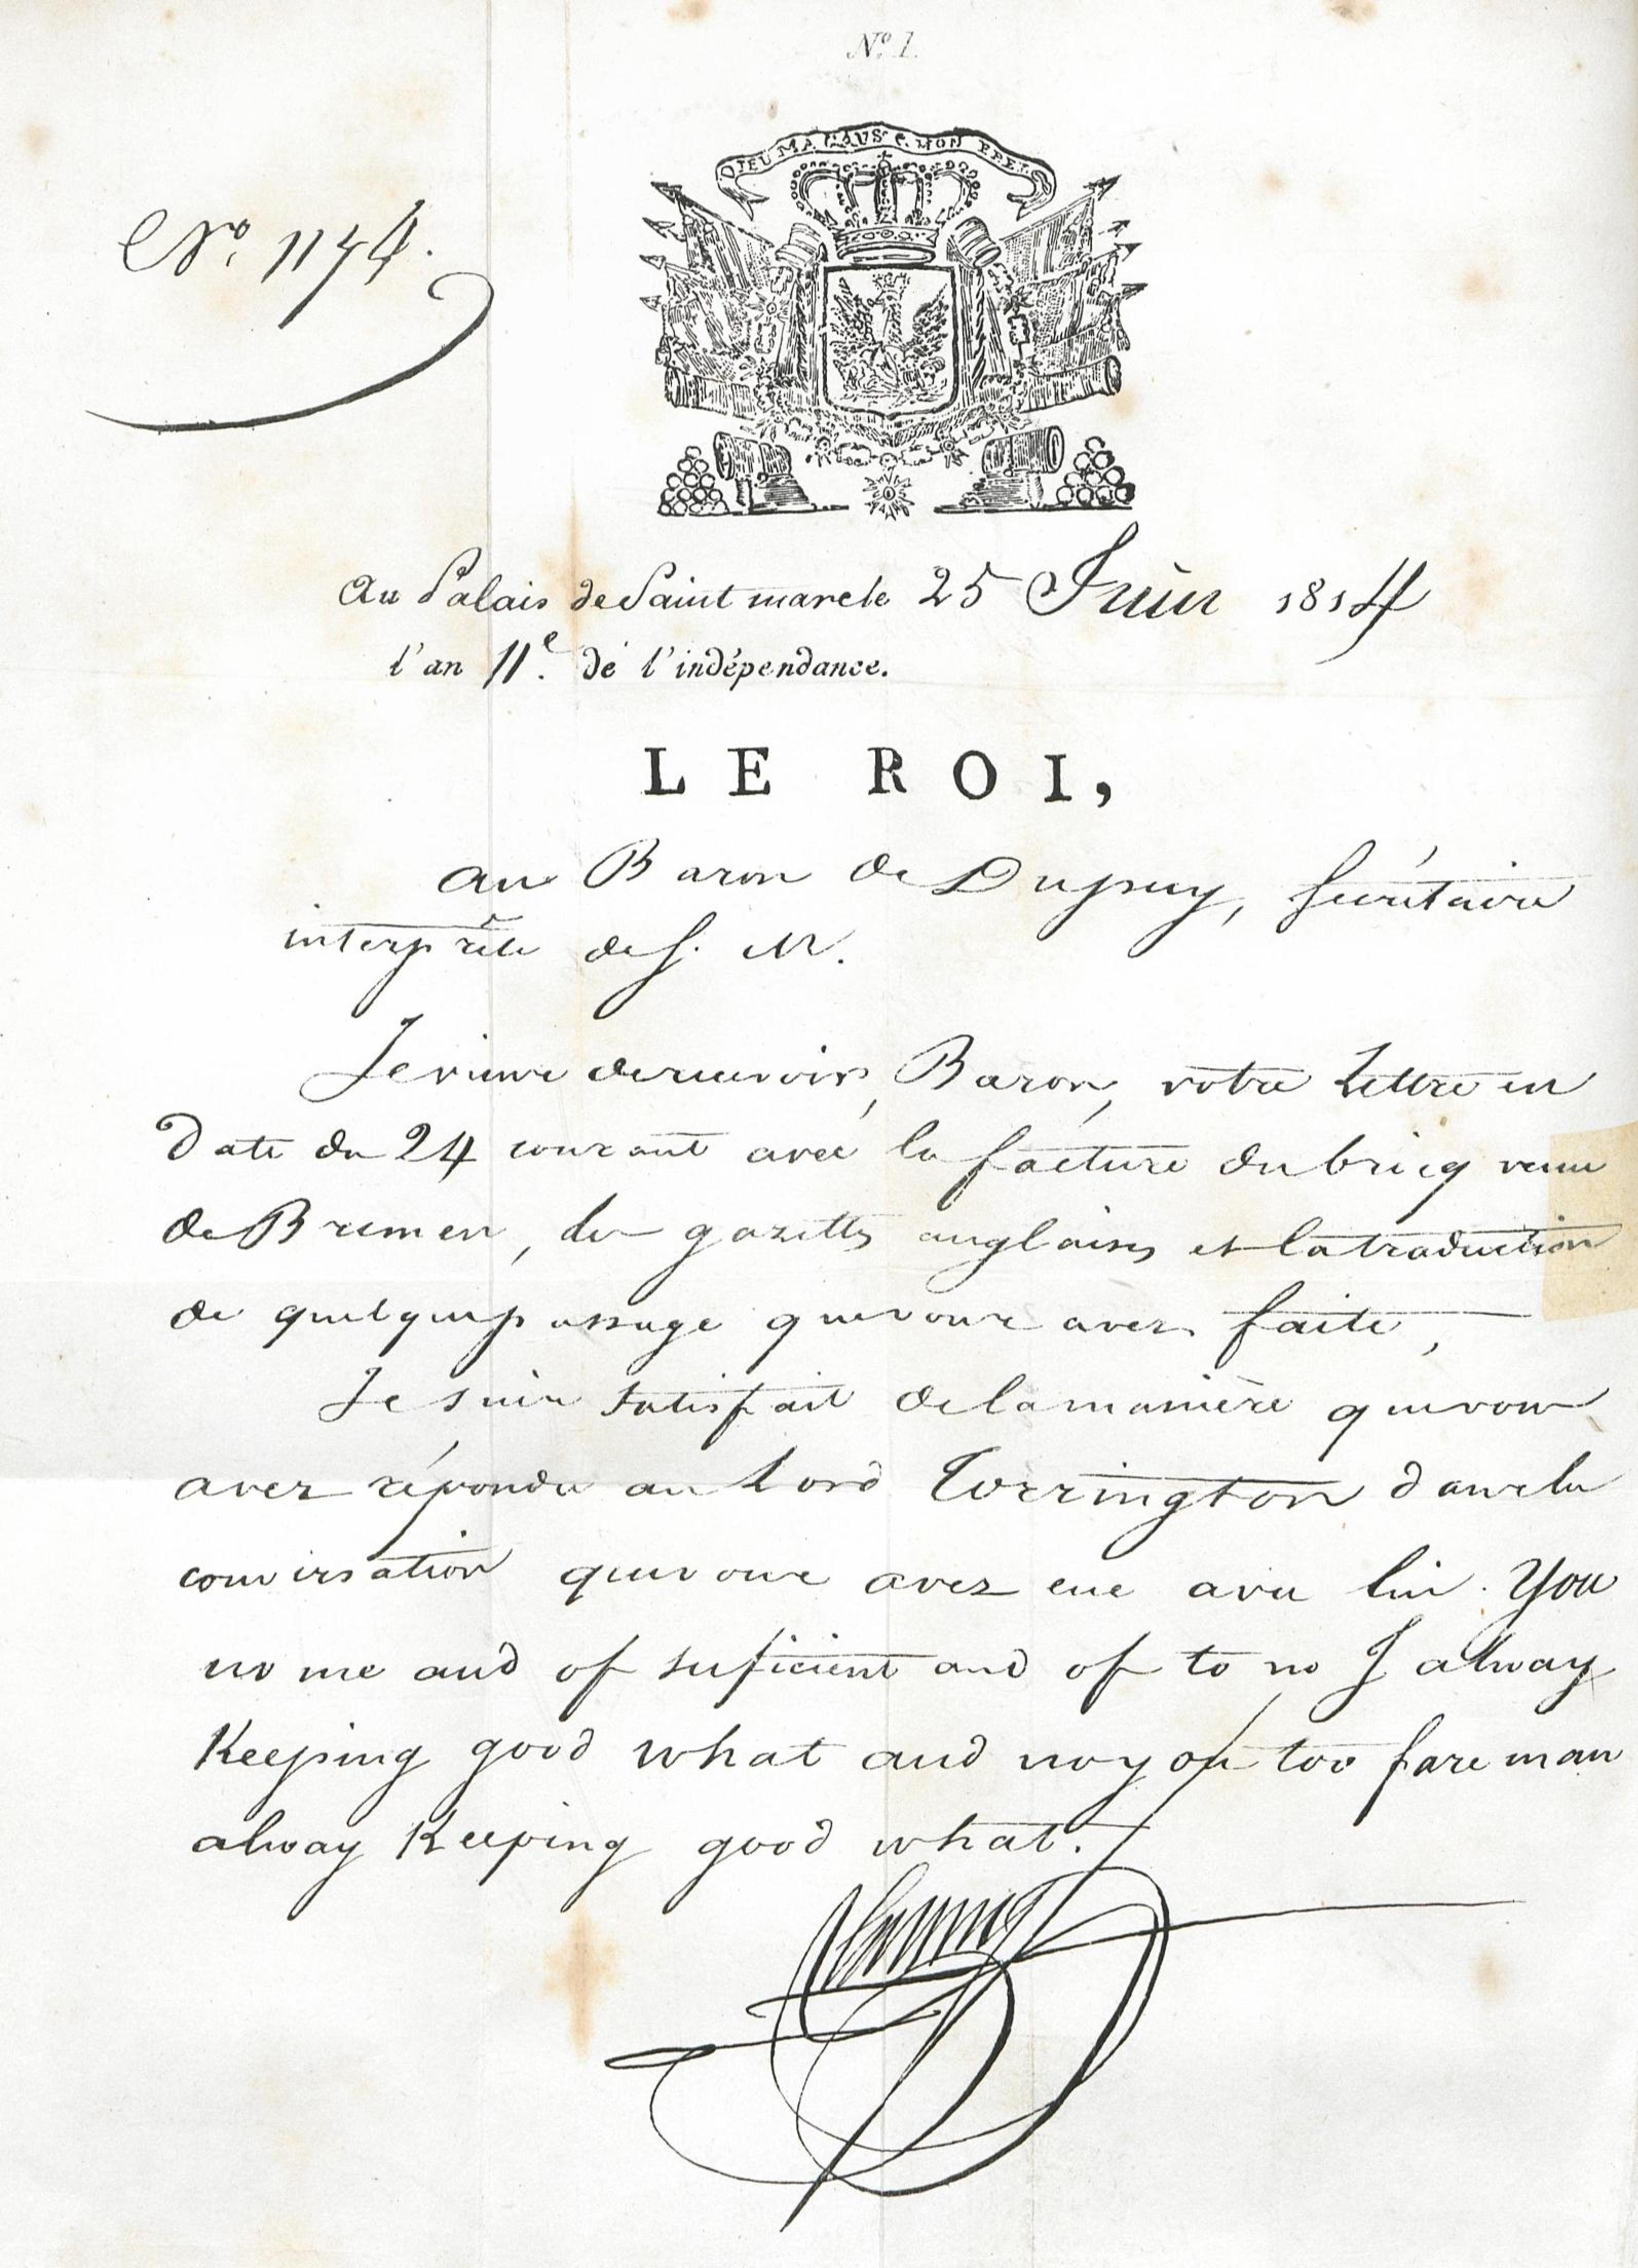 No. 1.
DIEU MA CAUSE MON EPEE
No. 1174.
Au Palais de Saint marc le 25 Juin 1814
l'an 11e. de l'indépendance.
LE ROI,
au Baron de Dupuy, Secrétaire
interprète de S. M.
Je viens de recevoir, Baron, votre Lettre en
date du 24 courant avec la facture du bricq venu
de Bremen, des gazettes anglaises et la traduction
de quelques passage que vous avez faite,
Je suis satisfait de la manière que vous
avez répondu au Lord Torrington dans la
conversation que vous avez eue avec lui. You
no me and of suficient and of to no I alway
Keeping good what and no you too fare man
alway Keeping good what.
henry